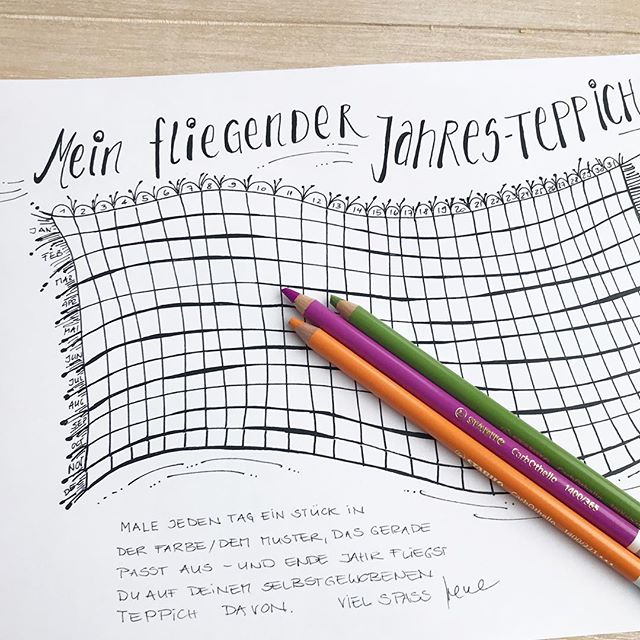 Mein fliegender Jahres-Teppich
1 2 3 4 5 6 7 8 9 10 11 12 13 14 15 16 17 18 19 20 21 22 23 24 25 26 27 28 29 30 31
JAN
FEB
MÄR
APR
MAI
JUN
JUL
AUG
SEP
OKT
NOV
DEZ
STABILO CarbOthello 1400/365
CarbOthello 1400/221
MALE JEDEN TAG EIN STÜCK IN
DER FARBE/DEM MUSTER, DAS GERADE
PASST AUS - UND ENDE JAHR FLIEGST
DU AUF DEINEM SELBSTGEWOBENEN
TEPPICH DAVON. VIEL SPASS